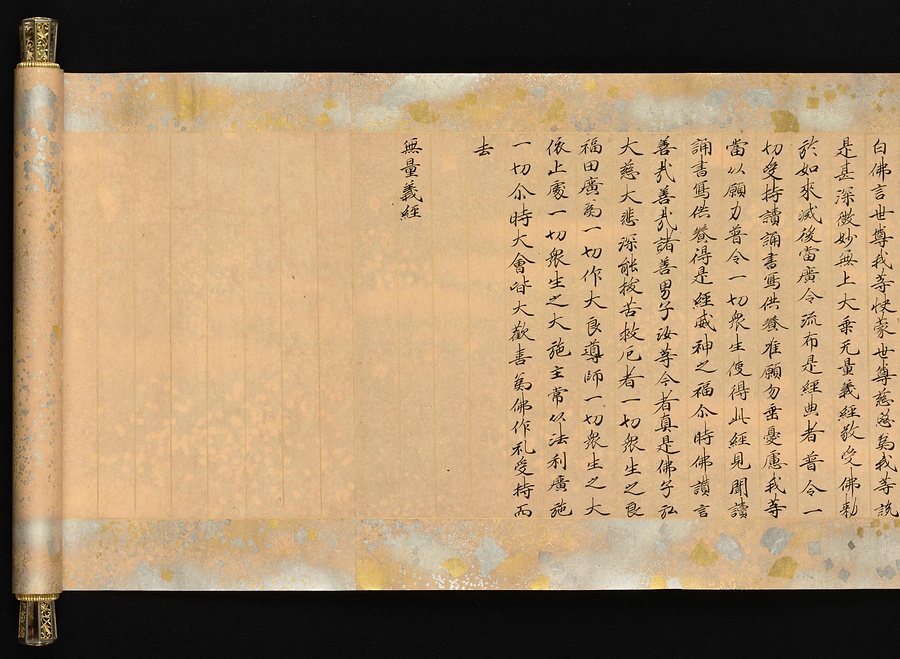 白佛言世尊我等快蒙世尊慈愍為我等説
是甚深微妙無上大乗无量義經敬受佛勅
於如來滅後當廣令流布是經典者普令一
切受持讀誦書寫供養唯願勿垂憂慮我等
當以願力普令一切衆生使得此經見聞讀
誦書寫供養得是經威神之福尒時佛讃言
善哉善哉諸善男子汝等今者真是佛子弘
大慈大悲深能拔苦救厄者一切衆生之良
福田廣為一切作大良導師一切衆生之大
依止處一切衆生之大施主常以法利廣施
一切尒時大會皆大歡喜為佛作礼受持而
去
無量義經